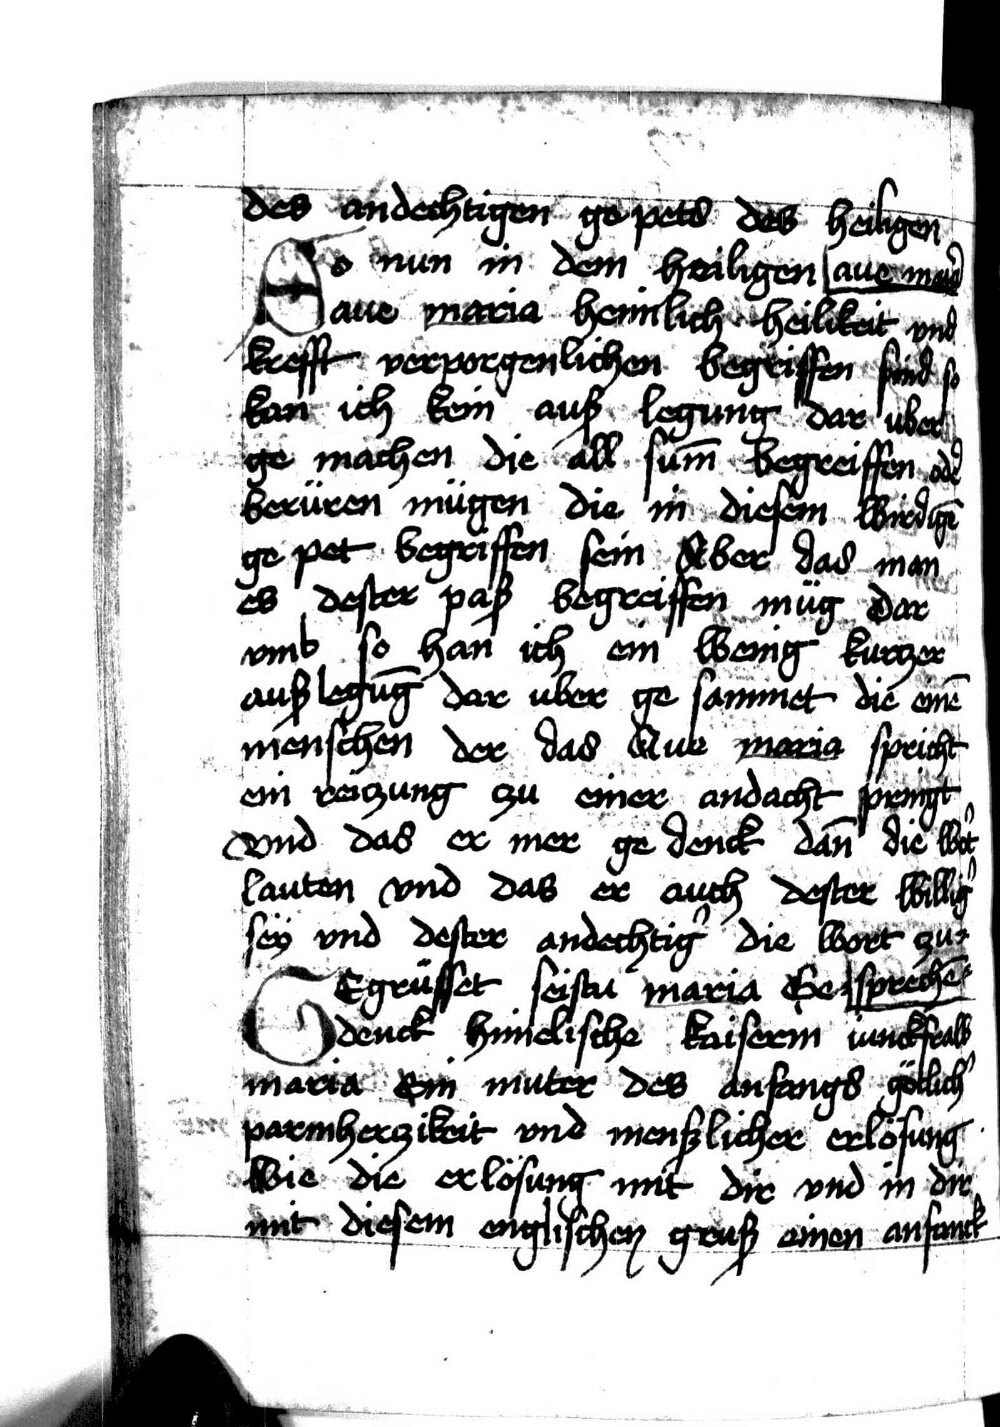 des andechtigen ge pets des heiligen
So nun in dem heiligen ave maria
aue maria heimlich heilikeit vnd
krefft verporgenlichen begriffen sind so
kan ich kein auß legung dar uber
ge machen die all sum̄ begreiffen od̓
berüren mügen die in diesem wirdigē
ge pet begriffen sein Aber das man
es dester paß begreiffen müg dar
vmb so han ich ein wenig kurtzer
auß legūg dar uber ge sammet die einē
menschen der das Aue maria spricht
ein reitzung zu einer andacht pringt
vnd das er mer ge denck dan̄ die wort
lauten vnd das er auch dester willig̓
sey vnd dester andechtig̓ die wort zu
GEgrüsset seistu maria Ge sprechē
denck himelische kaiserin iunckfraw
maria Ein muter des anfangs götlich̓
parmherzikeit vnd menßlicher erlösung
wie die erlösung mit dir vnd in dir
mit diesem englischen gruß einen anfanck